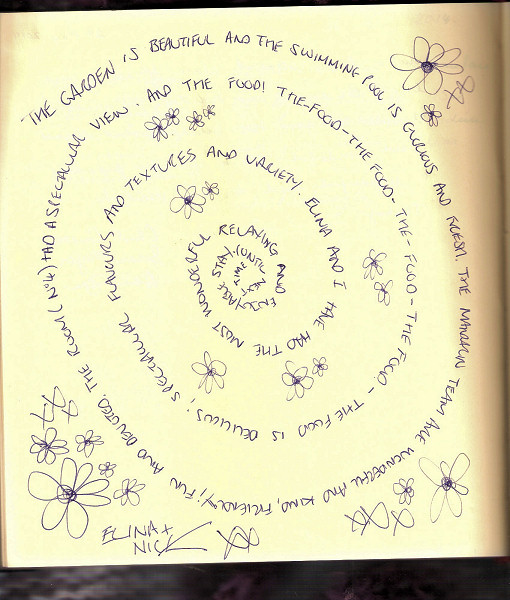 THE GARDEN IS BEAUTIFUL AND THE SWIMMING POOL IS GLORIOUS AND FRESH. THE MANDHUN TEAM ARE WONDERFUL AND KIND, FRIENDLY, FUN AND DEVOTED. THE ROOM (Nº4) HAD A SPECTACULAR VIEW. AND THE FOOD! THE-FOOD-THE FOOD-THE-FOOD-THE FOOD-THE FOOD IS DELICIOUS; SPECTACULAR FLAVOURS AND TEXTURES AND VARIETY. ELINA AND I HAVE HAD THE MOST WONDERFUL RELAXING AND ENJOYABLE STAY. (UNTIL NEXT TIME
ELINA +
NICK